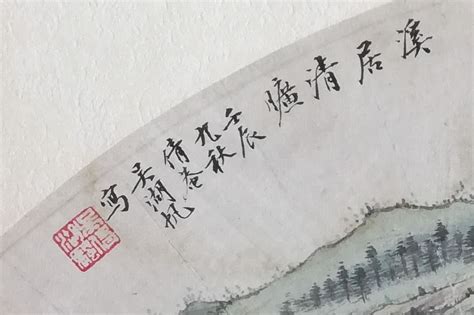 溪居清曠
壬辰
九秋
倩菴
吳湖帆
寫